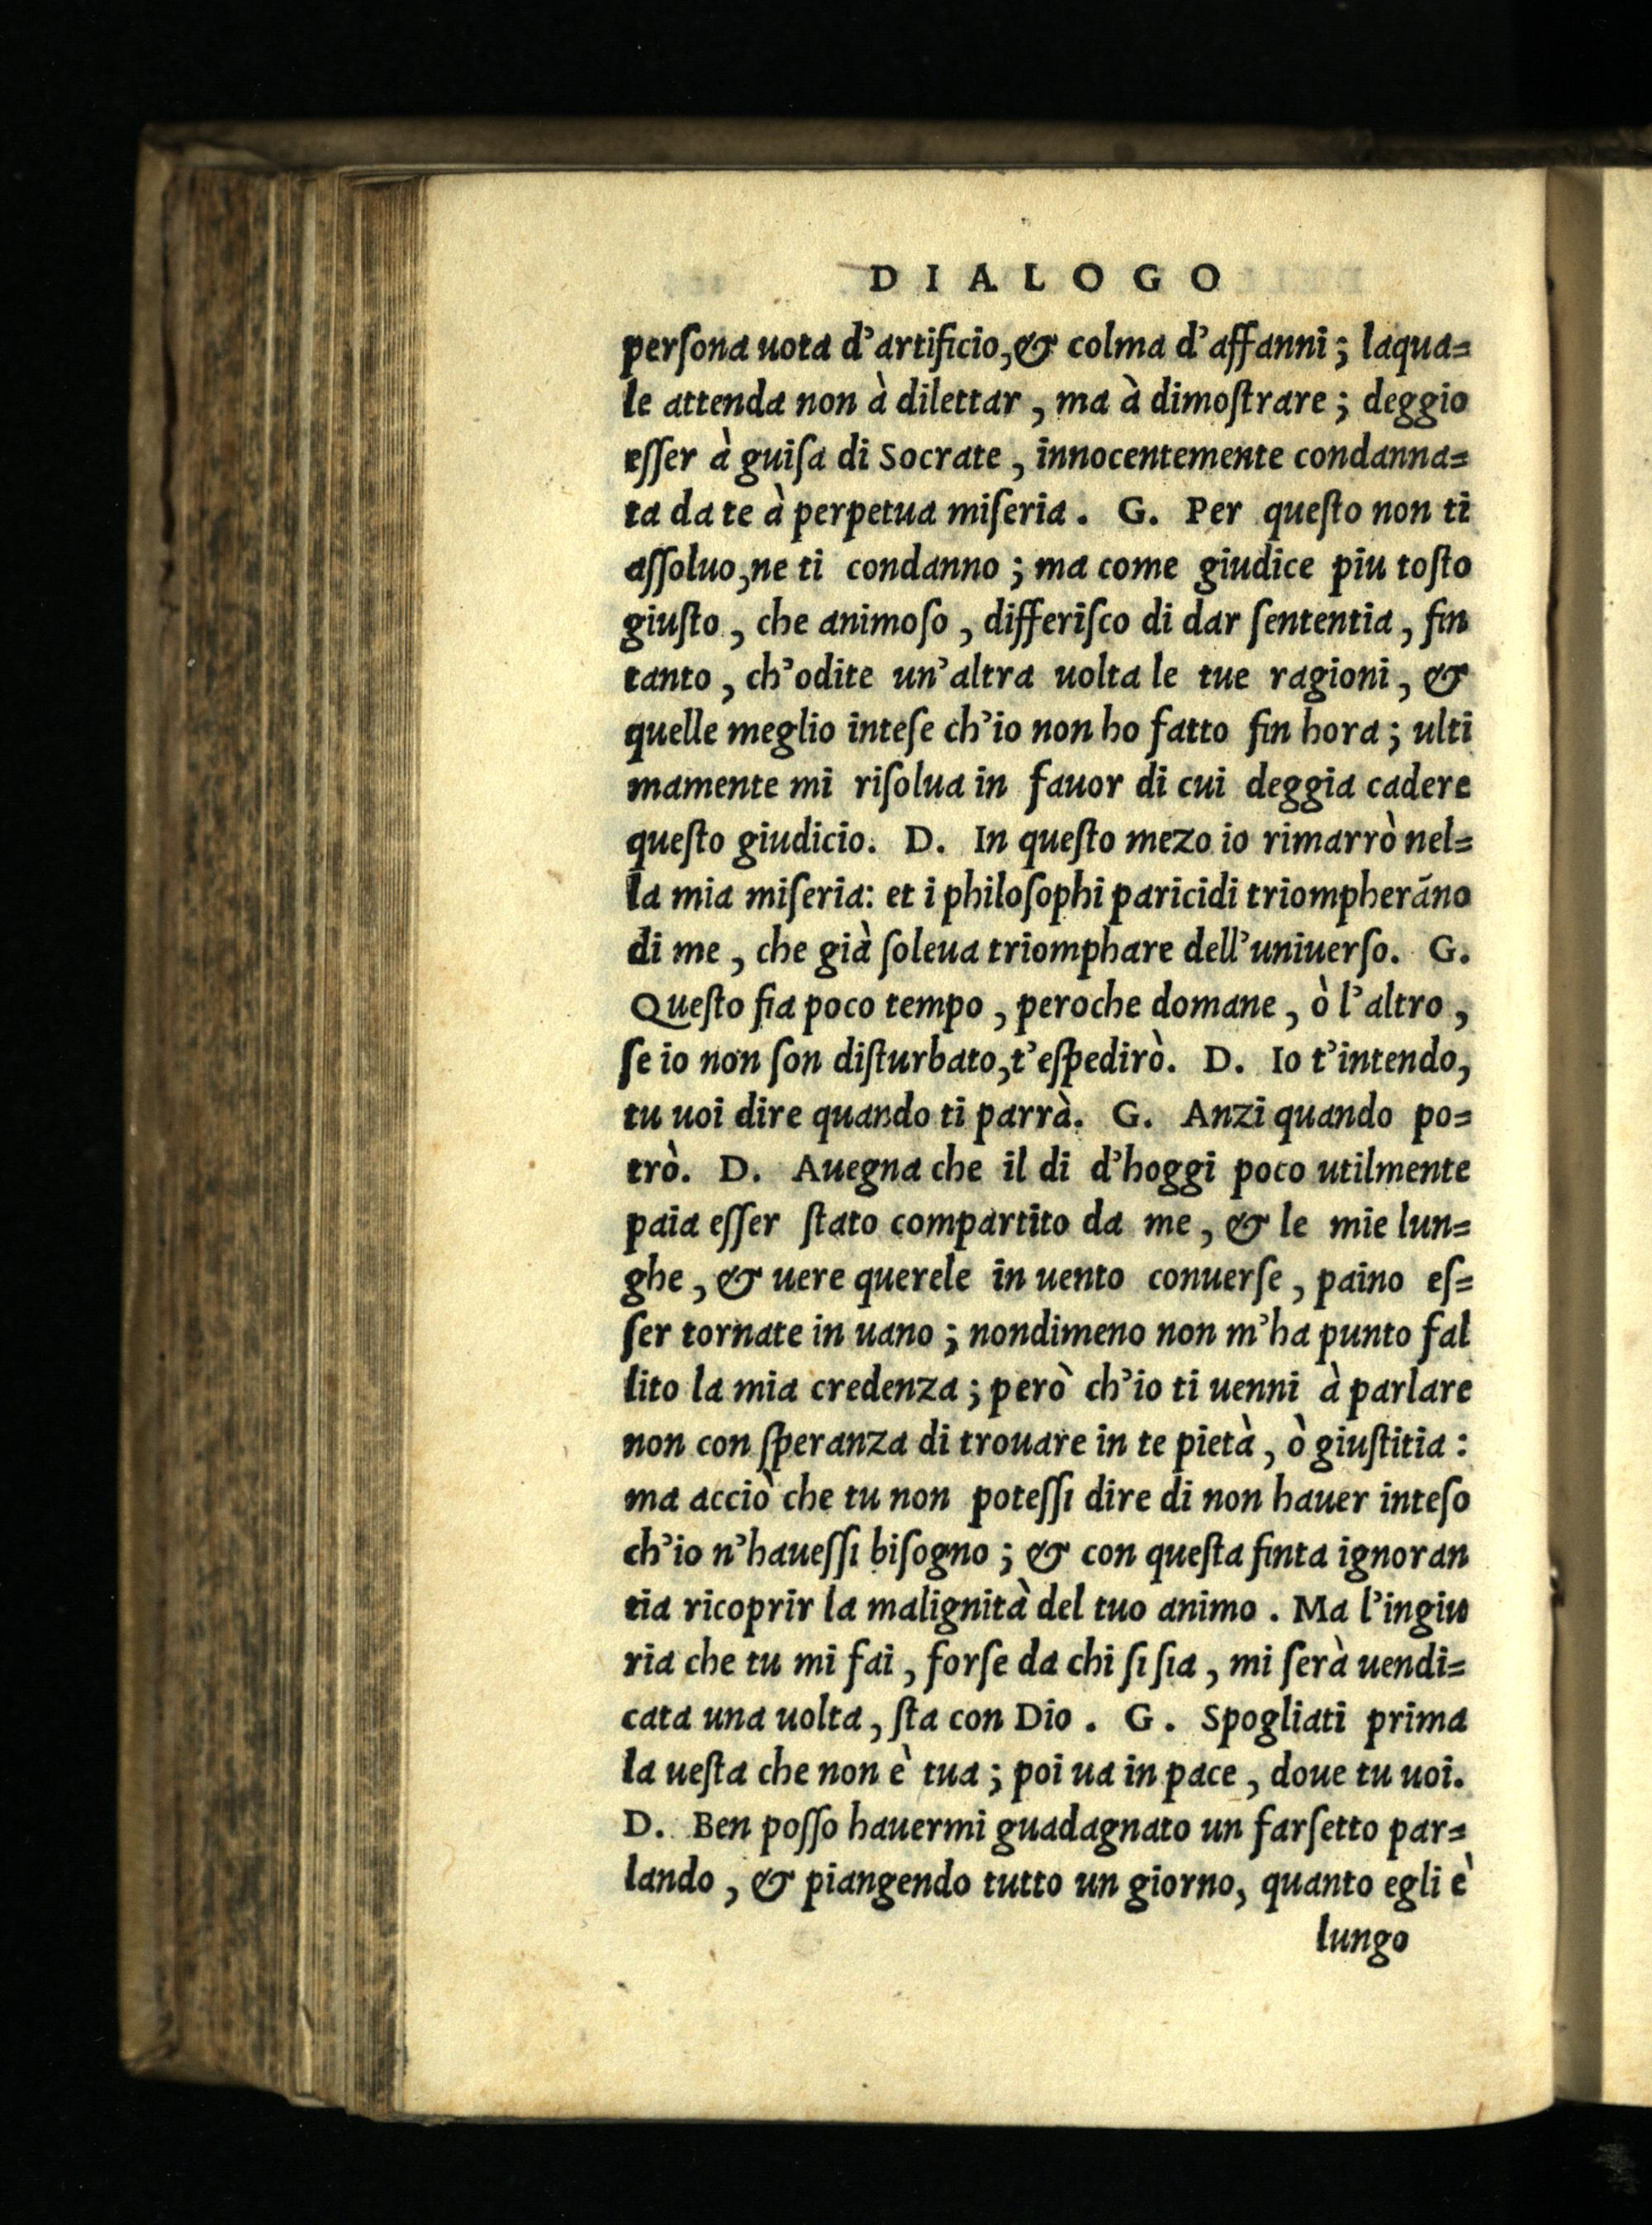 DIALOGO
perſona uota d'artificio,& colma d'affanni; laqua=
le attenda non à dilettar, ma à dimoſtrare; deggio
eſſer à guiſa di Socrate, innocentemente condanna=
ta da te à perpetua miſeria. G. Per queſto non ti
aſſoluo,ne ti condanno; ma come giudice piu toſto
giuſto, che animoſo, differiſco di dar ſententia, fin
tanto, ch'odite un'altra uolta le tue ragioni, &
quelle meglio inteſe ch'io non ho fatto fin hora; ulti
mamente mi riſolua in fauor di cui deggia cadere
queſto giudicio. D. In queſto mezo io rimarrò nel=
la mia miſeria: et i philoſophi paricidi triompherāno
di me, che già ſoleua triomphare dell'uniuerſo. G.
Queſto fia poco tempo, peroche domane, ò l'altro,
ſe io non ſon diſturbato,t'eſpedirò. D. Io t'intendo,
tu uoi dire quando ti parrà. G. Anzi quando po=
trò. D. Auegna che il di d'hoggi poco utilmente
paia eſſer ſtato compartito da me, & le mie lun=
ghe, & uere querele in uento conuerſe, paino eſ=
ſer tornate in uano; nondimeno non m'ha punto fal
lito la mia credenza; però ch'io ti uenni à parlare
non con ſperanza di trouare in te pietà, ò giuſtitia:
ma acciò che tu non poteſſi dire di non hauer inteſo
ch'io n'haueſſi biſogno; & con queſta finta ignoran
tia ricoprir la malignità del tuo animo. Ma l'ingiu
ria che tu mi fai, forſe da chi ſi ſia, mi ſerà uendi=
cata una uolta, ſta con Dio. G. Spogliati prima
la ueſta che non è tua; poi ua in pace, doue tu uoi.
D. Ben poſſo hauermi guadagnato un farſetto par=
lando, & piangendo tutto un giorno, quanto egli è
lungo